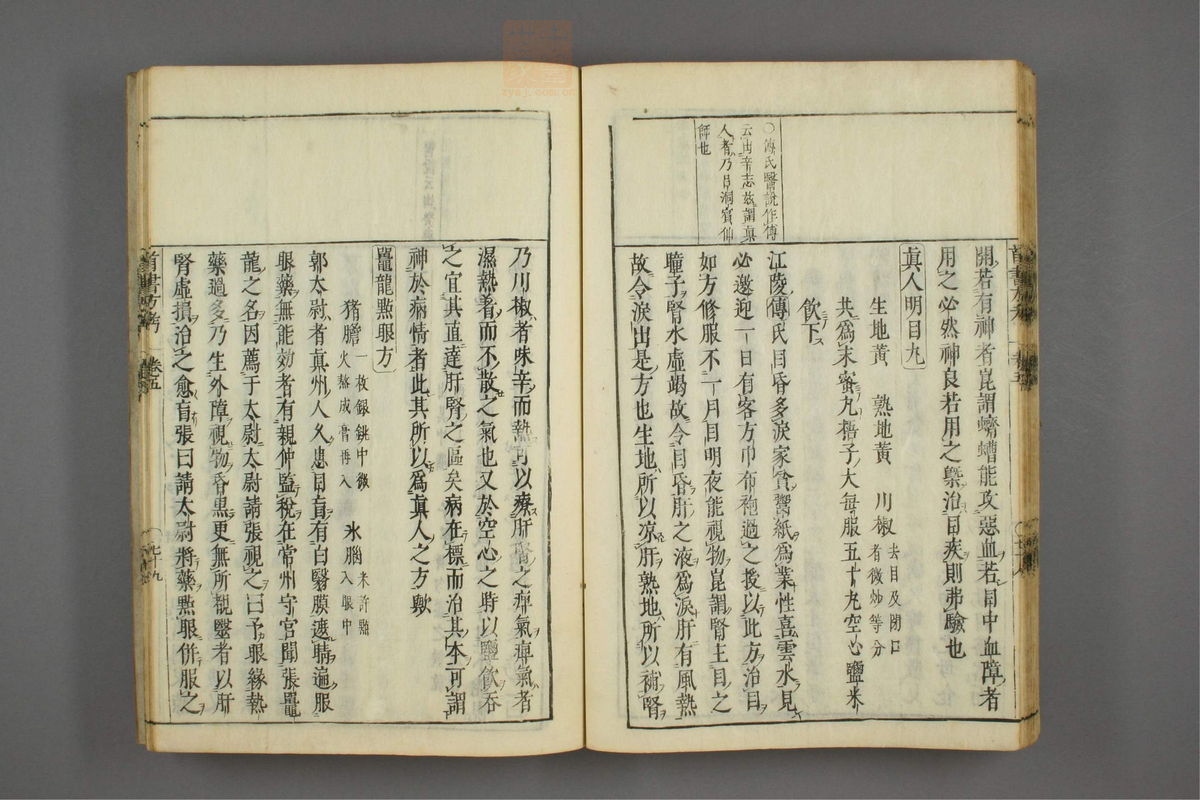 ○傳氏醫說作傳
云由辛志茲謂真
人者乃呂洞賓仙
師也
開若有神者崑謂蠐螬能攻惡血若目中血障者
用之必然神良若用之槩治目疾則弗驗也
真人明目丸
生地黃 熟地黃 川椒去目及閉口者微炒等分
共為末蜜丸梧子大每服五十丸空心鹽米
飲下
江陵傅氏目昏多淚家貧鬻紙為業性喜雲水見
必邀迎一日有客方巾布袍過之授以此方治目
如方修服不一月目明夜能視物崑謂腎主目之
瞳子腎水虛竭故令目昏肝之液為淚肝有風熱
故令淚出是方也生地所以凉肝熟地所以補腎
首書方考 卷五 九十九
乃川椒者味辛而熱可以療肝腎之痺氣痺氣者
濕熱着而不散之氣也又於空心之時以鹽飲吞
之宜其直達肝腎之區矣病在標而治其本可謂
神於病情者此其所以為真人之方歟
鼉龍點眼方
猪膽一枚銀銚中微火熬成膏再入 氷腦米許點入眼中
郭太尉者真州人久患目盲有白翳膜遮睛遍服
眼藥無能効者有親仲監稅在常州守官聞張鼉
龍之名因薦于太尉太尉請張視之曰予眼緣熱
藥過多乃生外障視物昏黑更無所覩毉者以肝
腎虛損治之愈盲張曰請太尉將藥點眼併服之